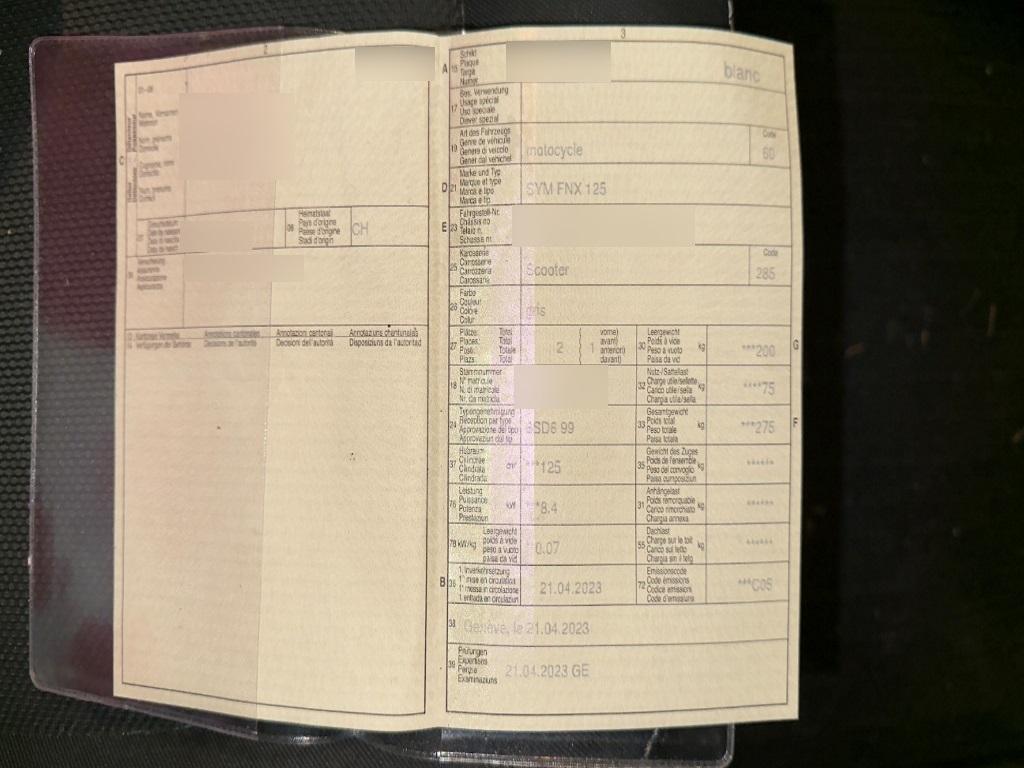 2
Heimatstaat
Pays d'origine
Paese d'origine
Stadi d'origin
CH
Annotations cantonales
Décisions de l'autorité
Annotazioni cantonali
Decisioni dell'autorità
Annotaziuns chantunalas
Disposiziuns da l'autoritad
3
A 15
Schild
Plaque
Targa
Numer
blanc
17
Bes. Verwendung
Usage spécial
Uso speciale
Diever spezial
19
Art des Fahrzeugs
Genre de véhicule
Genere di veicolo
Gener dal vehichel
motocycle
Code
60
D 21
Marke und Typ
Marque et type
Marca e tipo
Marca e tip
SYM FNX 125
E 23
Fahrgestell-Nr.
Châssis no
Telaio n.
Schassis nr.
25
Karosserie
Carrosserie
Carrozzeria
Carossaria
Scooter
Code
285
26
Farbe
Couleur
Colore
Colur
gris
27
Plätze: Total
Places: Total
Posti: Totale
Plazs: Total
2
( vorne)
( 1 avant)
( anteriori)
( davant)
30
Leergewicht
Poids à vide
Peso a vuoto
Paisa da vid
kg
***200
G
18
Stammnummer
N° matricule
N. di matricola
Nr. da matricla
32
Nutz-/Sattellast
Charge utile/sellette
Carico utile/sella
Chargia utila/sella
kg
****75
24
Typengenehmigung
Réception par type
Approvazione del tipo
Approvaziun dal tip
6SD6 99
33
Gesamtgewicht
Poids total
Peso totale
Paisa totala
kg
***275
F
37
Hubraum
Cylindrée
Cilindrata
Cilindrada
cm³
***125
35
Gewicht des Zuges
Poids de l'ensemble
Peso del convoglio
Paisa cumposiziun
kg
******
76
Leistung
Puissance
Potenza
Prestaziun
kW
**8.4
31
Anhängelast
Poids remorquable
Carico rimorchiato
Chargia annexa
kg
******
78 kW/kg
Leergewicht
poids à vide
peso a vuoto
paisa da vid
**0.07
55
Dachlast
Charge sur le toit
Carico sul tetto
Chargia sin il tetg
kg
******
B 36
1. Inverkehrsetzung
1re mise en circulation
1a messa in circolazione
1. entrada en circulaziun
21.04.2023
72
Emissionscode
Code émissions
Codice emissioni
Code d'emissiuns
***C05
38
Genève, le 21.04.2023
39
Prüfungen
Expertises
Perizie
Examinaziuns
21.04.2023 GE